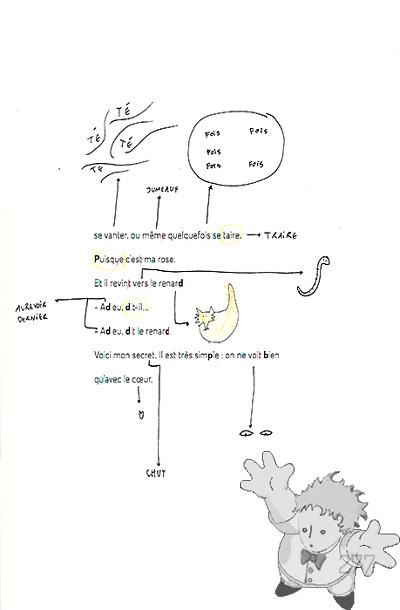 TÉ
TÉ
TÉ
TE
FOIS FOIS
FOIS
FOIS FOIS
JUMEAUX
se vanter, ou même quelquefois se taire. TRAIRE
Puisque c'est ma rose.
Et il revint vers le renard
AUREVOIR
DERNIER
- Adieu, dit-il...
- Adieu, dit le renard.
Voici mon secret. Il est très simple : on ne voit bien
qu'avec le cœur.
CHUT
277